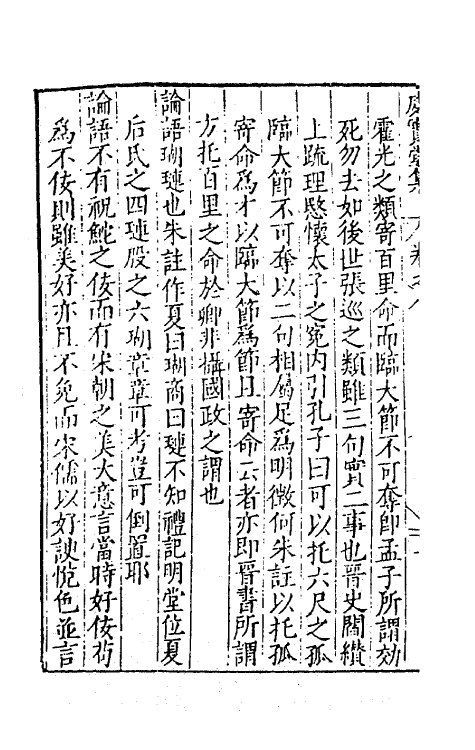 霍光之類寄百里命而臨大節不可奪即孟子所謂効
死勿去如後世張巡之類雖三句實二事也晉史閻纘
上疏理愍懷太子之冤内引孔子曰可以托六尺之孤
臨大節不可奪以二句相屬足爲明徴何朱註以托孤
寄命爲才以臨大節爲節且寄命云者亦即晉書所謂
方托百里之命於卿非攝國政之謂也
論語瑚璉也朱註作夏曰瑚商曰璉不知禮記明堂位夏
后氏之四璉殷之六瑚章章可考豈可倒置耶
論語不有祝鮀之佞而有宋朝之美大意言當時好佞茍
爲不佞則雖美好亦且不免而宋儒以好諛悅色並言